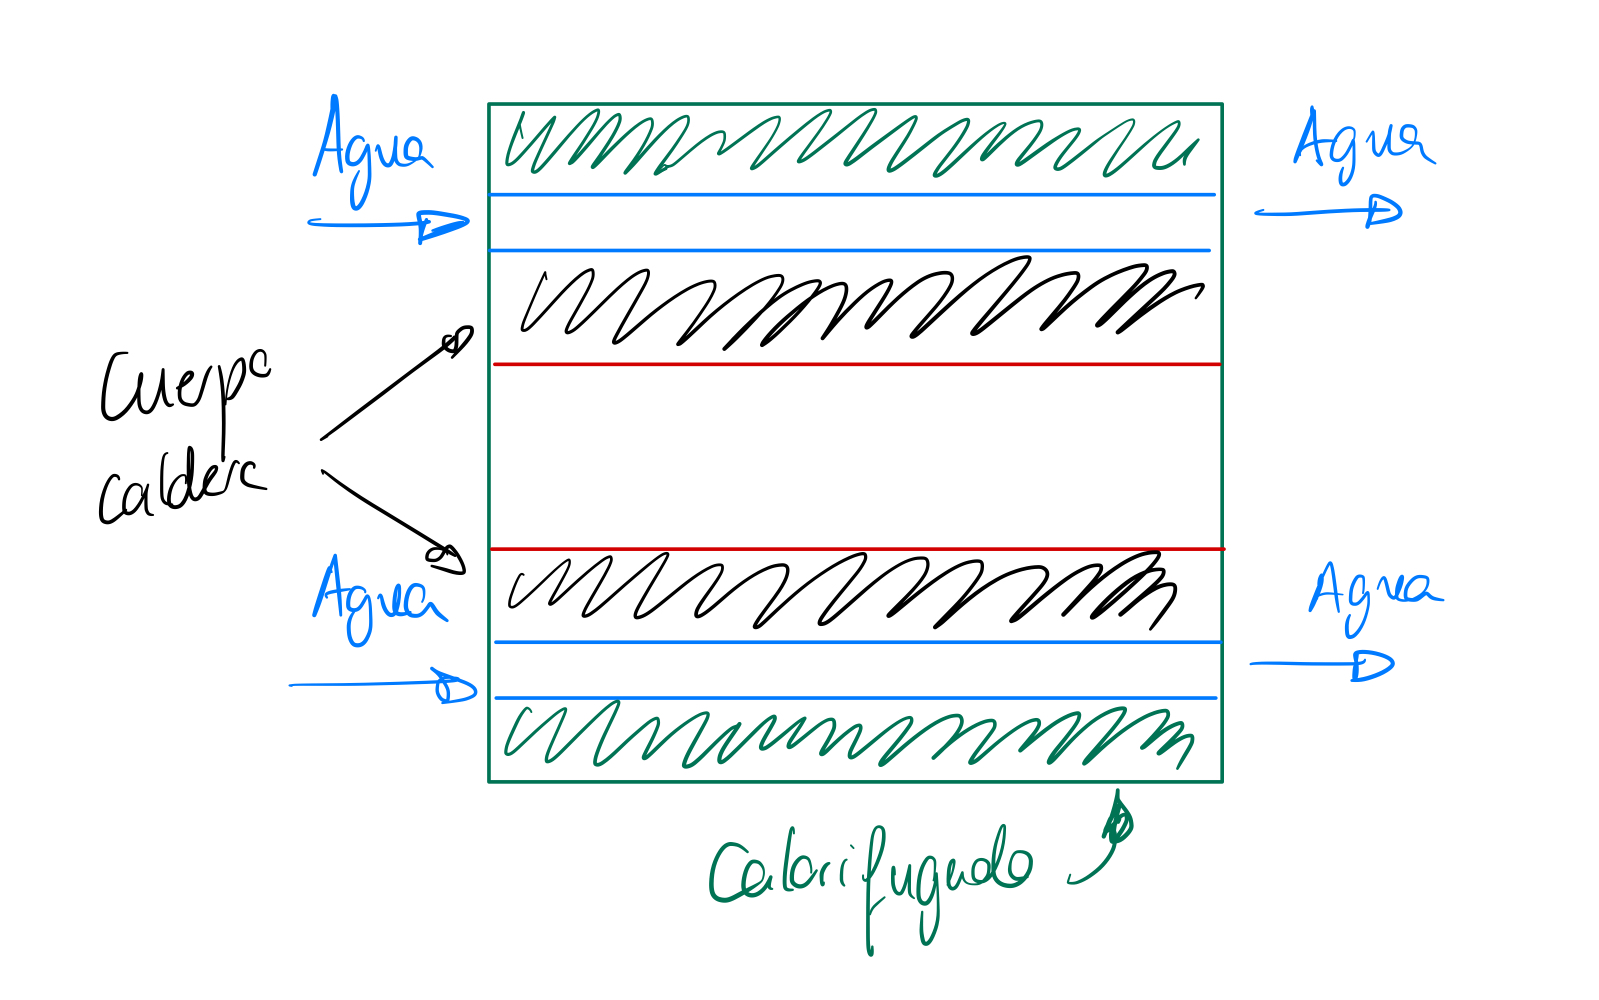 Agua
Agua
Cuerpo
caldera
Agua
Agua
Calorifugado